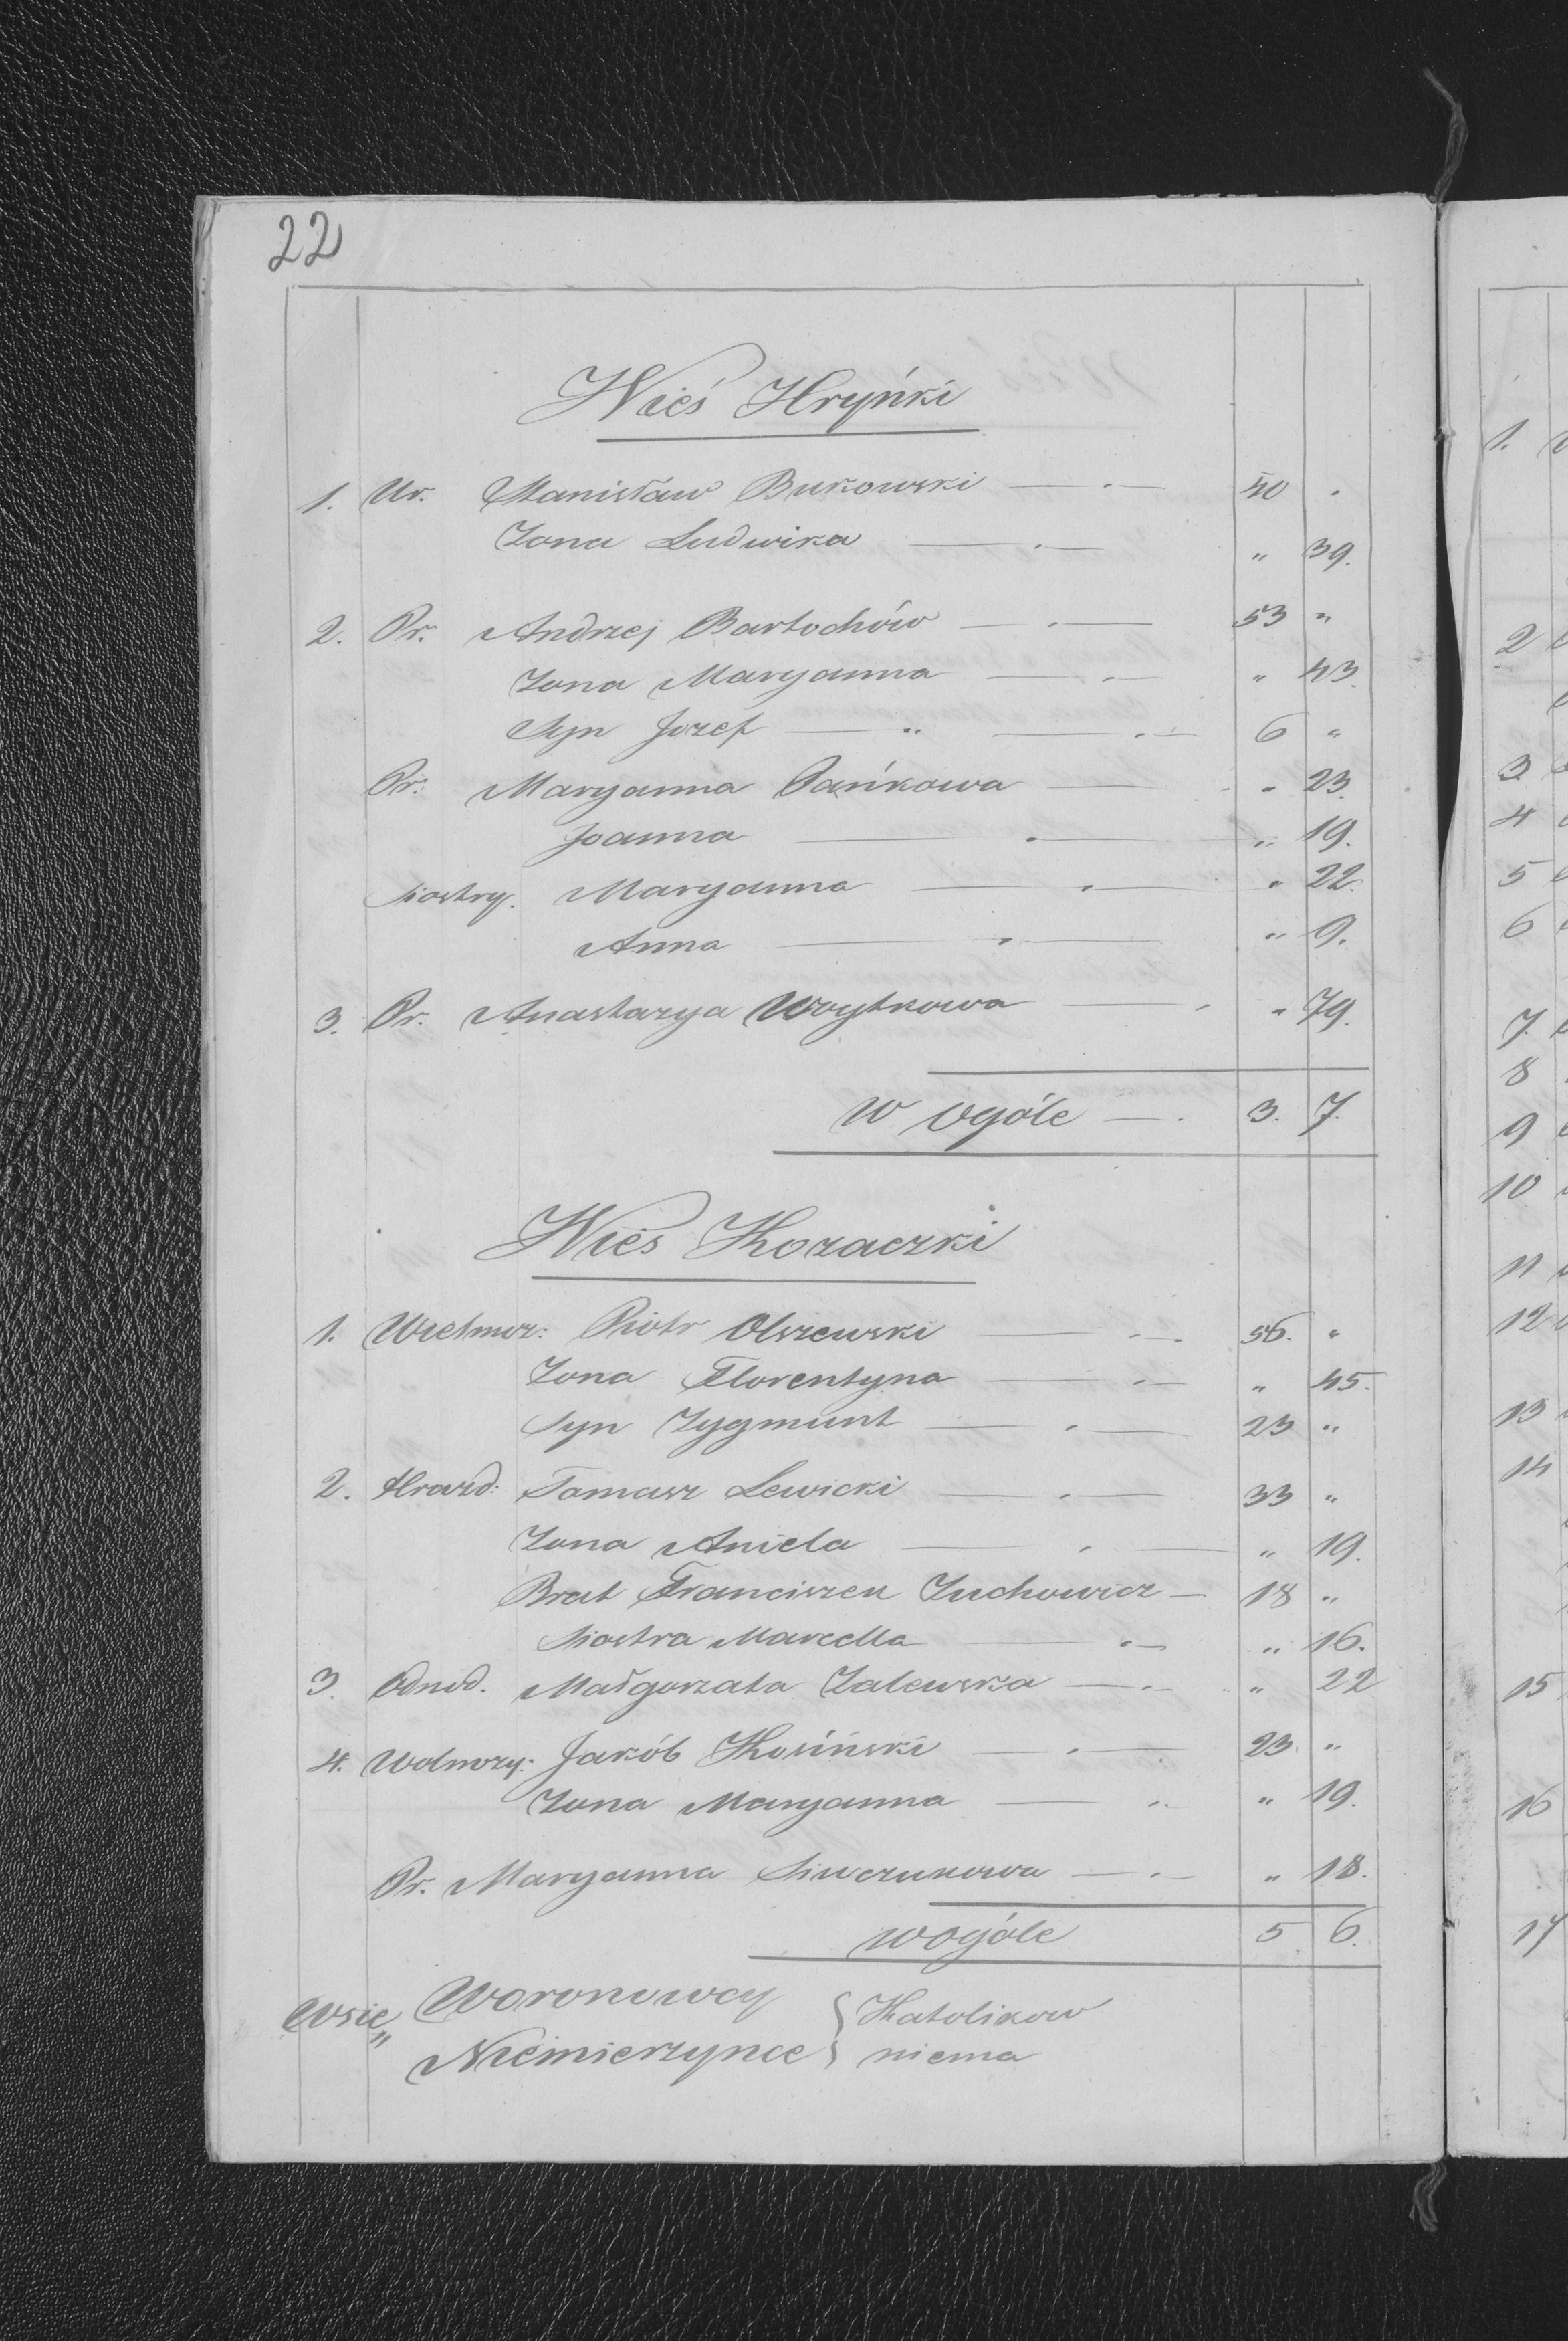 22
Wieś Hryńki
1. Ur. Stanisław Bukowski — . — 40 .
Zona Ludwika — . — " 39.
2. Pr. Andrzej Bartochów — . — 53 "
Zona Maryanna — . — " 43.
Syn Jozef — " — . — 6 "
Pr: Maryanna Pańkowa — " 23.
Joanna — . — " 19.
Siostry. Maryanna — . — " 22.
Anna — . — " 9.
3. Pr. Anastazya Woytkowa — . " 79.
w ogóle — . 3. 7.
Wieś Kozaczki
1. Wietmoz: Piotr Olszewski — . — . 56. "
Zona Florentyna — . — " 45.
Syn Zygmunt — . — 23 "
2. Hrazd: Tamasz Lewicki — . — 33 "
Zona Aniela — . — " 19.
Brat Franciszek Zuchowicz — 18 "
Siostra Marcella — . — " 16.
3. Odnod. Małgorzata Zalewska — . — " 22
4. Wolnozy: Jakób Kosiński — . — 23. "
Zona Maryanna — . . " 19.
Pr. Maryanna Siwczukowa — . — " 18.
wogóle 5 6.
Wsie Woronowcy } Katolikow
" Niemierzynce } niema
1.
2
3.
4
5
6
7.
8
9
10
11
12
13
14
15
16
17